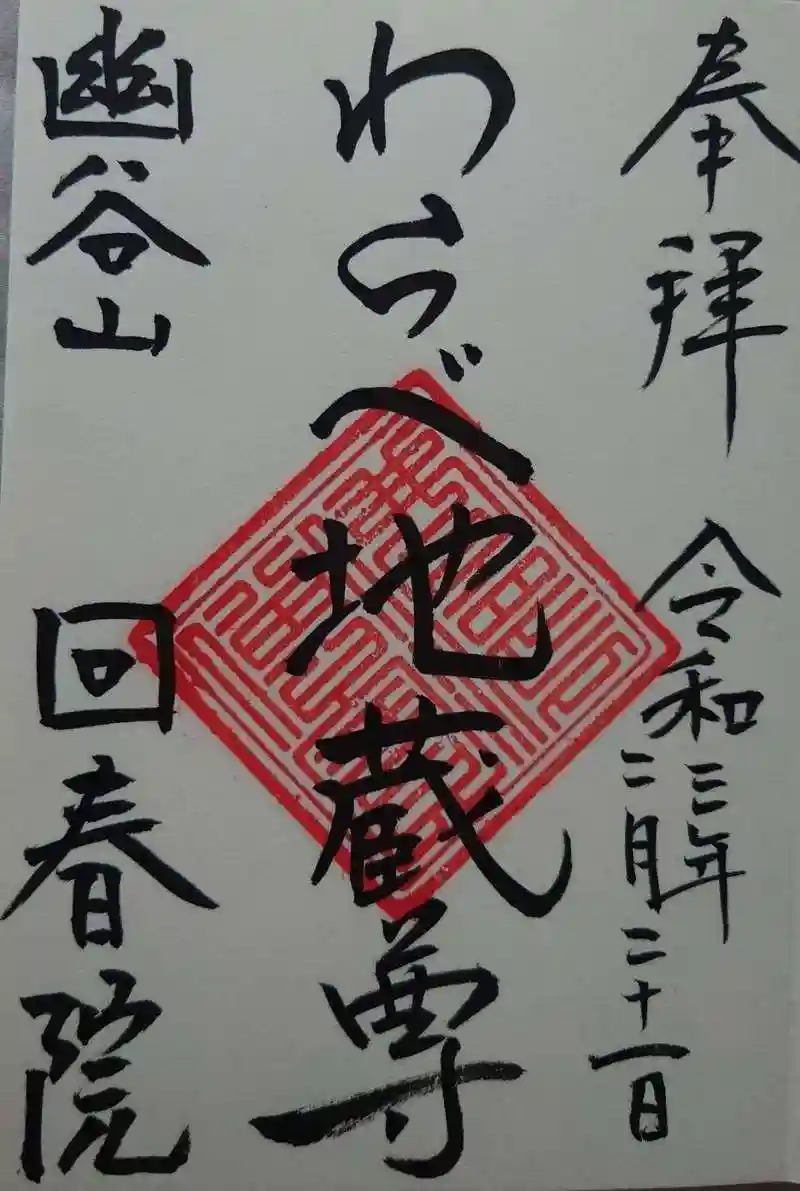 奉拝
令和三年
二月二十一日
わらべ地蔵尊
幽谷山
回春院